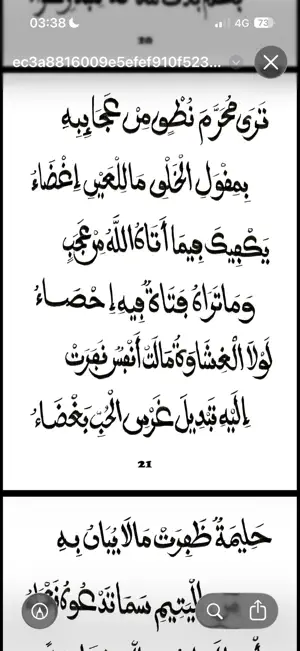 03:38
4G 73
ec3a8816009e5efef910f523...
تَرَى مُحَرَّمَ نُطْقٍ مِنْ عَجَائِبِهِ
بِمِقْوَلِ الْخَلْقِ مَا لِلْعَيْنِ إِغْضَاءُ
يَكْفِيكَ فِيمَا أَتَاهُ اللَّهُ مِنْ عَجَبٍ
وَمَا تَرَاهُ فَتَاةٌ فِيهِ إِحْصَاءُ
لَوْلَا الْغِشَاوَةُ مَالَتْ أَنْفُسٌ نَفَرَتْ
إِلَيْهِ تَبْدِيلَ غَرْسِ الْحُبِّ بَغْضَاءُ
21
حَلِيمَةٌ ظَفِرَتْ مَا لَا يُبَانُ بِهِ
الْيَتِيمِ سَمَا تَدْعُوهُ